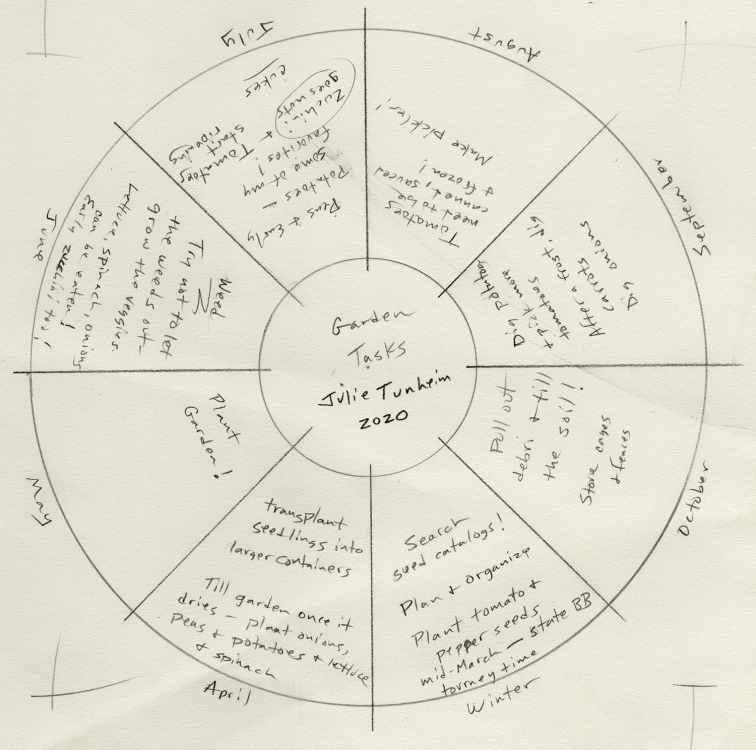 Garden
Tasks
Julie Tunheim
2020
Winter
Search
seed catalogs!
Plan & organize
Plant tomato &
pepper seeds
mid-March - State BB
tourney time
April
transplant
seedlings into
larger containers
Till garden once it
dries - plant onions,
peas & potatoes & lettuce
& spinach
May
Plant
Garden!
June
Weed
Try not to let
the weeds out-
grow the veggies.
Lettuce, spinach, onions
can be eaten!
Early zucchini too!
July
Peas & Early
Potatoes -
some of my
favorites! &
Tomatoes
start
ripening
Zuchini
goes nuts
cukes
August
Tomatoes
need to be
canned, sauced
& frozen!
Make pickles!
September
Dig potatoes
& pick more
tomatoes
After a frost, dig
carrots
Dig onions
October
Pull out
debri & till
the soil!
Store cages
& fences